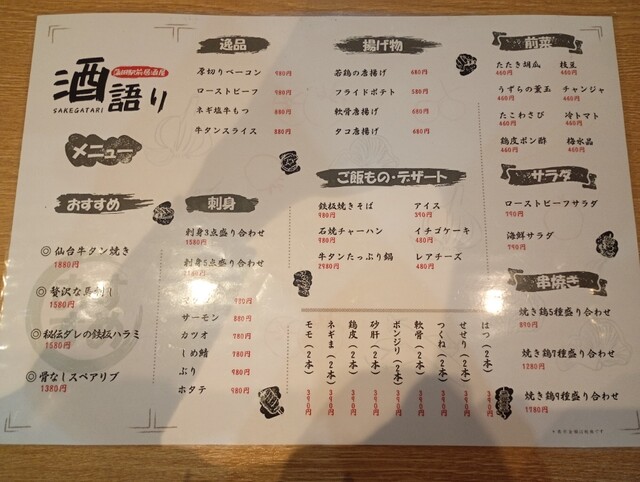 酒語り
SAKEGATARI
メニュー
おすすめ
◎ 仙台牛タン焼き
1880円
◎ 贅沢な馬刺し
1580円
◎ 秘伝ダレの鉄板ハラミ
1580円
◎ 骨なしスペアリブ
1380円
逸品
厚切りベーコン 980円
ローストビーフ 980円
ネギ塩牛もつ 880円
牛タンスライス 880円
刺身
刺身3点盛り合わせ
1580円
刺身5点盛り合わせ
サーモン 880円
カツオ 780円
しめ鯖 780円
ぶり 980円
ホタテ 980円
揚げ物
若鶏の唐揚げ 680円
フライドポテト 580円
軟骨唐揚げ 680円
タコ唐揚げ 680円
ご飯もの・デザート
鉄板焼きそば
980円
アイス
390円
石焼チャーハン
980円
イチゴケーキ
480円
牛タンたっぷり鍋
2980円
レアチーズ
480円
はつ(2本) 390円
せせり(2本) 390円
つくね(2本) 390円
軟骨(2本) 390円
ボンジリ(2本) 390円
砂肝(2本) 390円
鶏皮(2本) 390円
ネギま(2本) 390円
モモ(2本) 390円
前菜
たたき胡瓜
460円
枝豆
460円
うずらの薫玉
460円
チャンジャ
460円
たこわさび
460円
冷トマト
460円
鶏皮ポン酢
460円
梅水晶
460円
サラダ
ローストビーフサラダ
790円
海鮮サラダ
790円
串焼き
焼き鶏5種盛り合わせ
890円
焼き鶏7種盛り合わせ
1280円
焼き鶏9種盛り合わせ
1780円